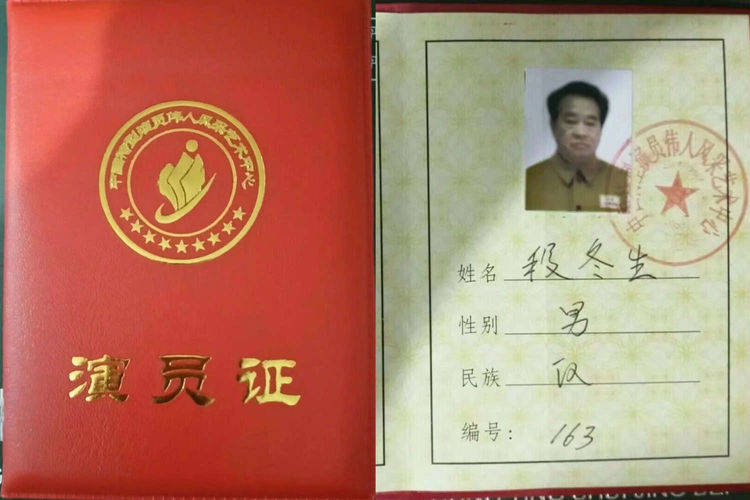 中国特型演员伟人风采艺术中心
演员证
演员伟人风采艺术中心
姓名 段冬生
性别 男
民族 汉
编号: 163